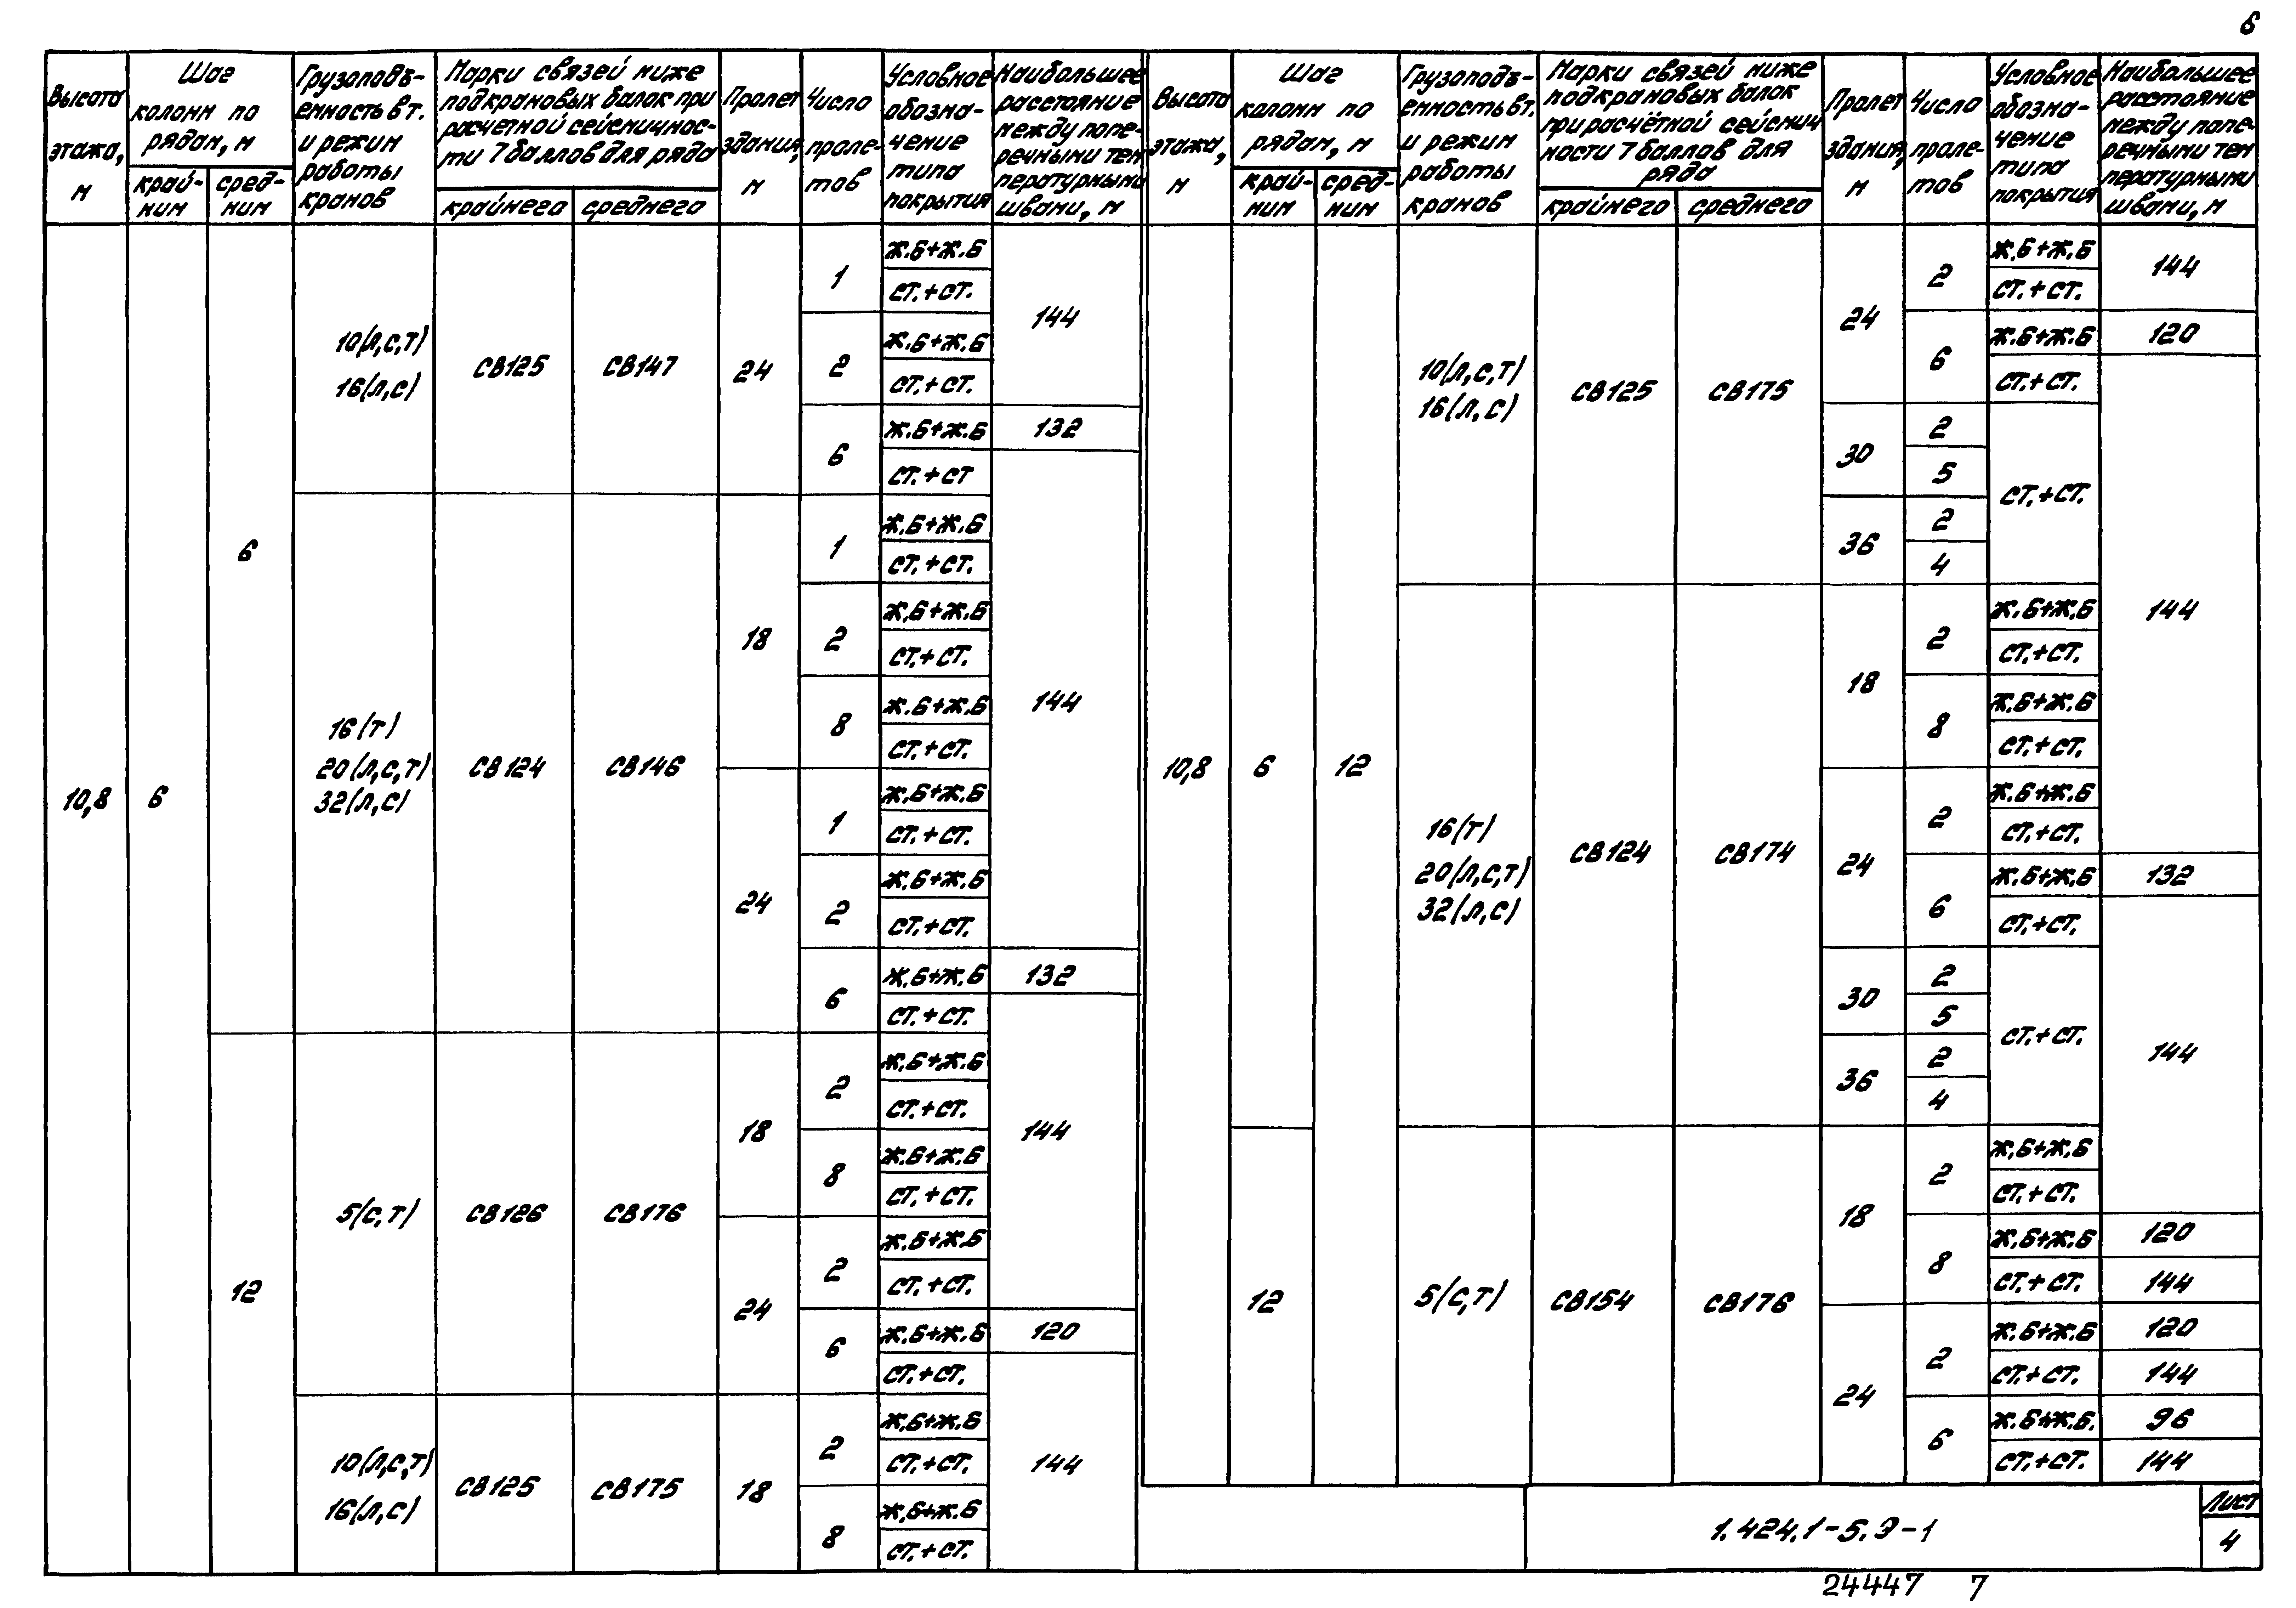 6
Высота этажа, м
Шаг колонн по рядам, м
край-ним
сред-ним
Грузоподъ-емность в т. и режим работы кранов
Марки связей ниже подкрановых балок при расчетной сейсмичнос-ти 7 баллов для ряда
крайнего
среднего
Пролет здания, м
Число проле-тов
Условное обозна-чение типа покрытия
Наибольшее расстояние между попе-речными тем пературными швами, м
10,8
6
6
10(л,с,т)
16(л,с)
СВ125
СВ147
24
1
ж.б+ж.б
ст.+ст.
144
2
ж.б+ж.б
ст.+ст.
6
ж.б+ж.б
132
ст.+ст
144
16(т)
20(л,с,т)
32(л,с)
СВ124
СВ146
18
1
ж.б+ж.б
ст.+ст.
2
ж.б+ж.б
ст.+ст.
8
ж.б+ж.б
ст.+ст.
24
1
ж.б+ж.б
ст.+ст.
2
ж.б+ж.б
ст.+ст.
6
ж.б+ж.б
132
ст.+ст.
144
12
5(с,т)
СВ126
СВ176
18
2
ж.б+ж.б
ст.+ст.
8
ж.б+ж.б
ст.+ст.
24
2
ж.б+ж.б
ст.+ст.
6
ж.б+ж.б
120
ст.+ст.
144
10(л,с,т)
16(л,с)
СВ125
СВ175
18
2
ж.б+ж.б
ст.+ст.
8
ж.б+ж.б
ст.+ст.
Высота этажа, м
Шаг колонн по рядам, м
край-ним
сред-ним
Грузоподъ-емность в т. и режим работы кранов
Марки связей ниже подкрановых балок при расчётной сейсмич ности 7 баллов для ряда
крайнего
среднего
Пролет здания, м
Число проле-тов
Условное обозна-чение типа покрытия
Наибольшее расстояние между попе-речными тем пературными швами, м
10,8
6
12
10(л,с,т)
16(л,с)
СВ125
СВ175
24
2
ж.б+ж.б
ст.+ст.
144
6
ж.б+ж.б
120
ст.+ст.
144
30
2
5
ст.+ст.
36
2
4
16(т)
20(л,с,т)
32(л,с)
СВ124
СВ174
18
2
ж.б+ж.б
ст.+ст.
8
ж.б+ж.б
ст.+ст.
24
2
ж.б+ж.б
ст.+ст.
6
ж.б+ж.б
132
ст.+ст.
144
30
2
5
ст.+ст.
36
2
4
12
5(с,т)
СВ154
СВ176
18
2
ж.б+ж.б
ст.+ст.
8
ж.б+ж.б
120
ст.+ст.
144
24
2
ж.б+ж.б
120
ст.+ст.
144
6
ж.б+ж.б.
96
ст.+ст.
144
1.424.1-5.Э-1
Лист
4
24447 7